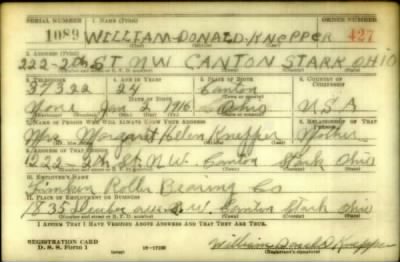 SERIAL NUMBER 1. NAME (Print) ORDER NUMBER
1089 WILLIAM DONALD KNEPPER 427
(First) (Middle) (Last)
2. ADDRESS (Print)
222-2th ST NW CANTON STARK OHIO
3. TELEPHONE 4. AGE IN YEARS 5. PLACE OF BIRTH 6. COUNTRY OF CITIZENSHIP
37322 24 Canton
DATE OF BIRTH
None Jan 2 1916 Ohio U.S.A
7. NAME OF PERSON WHO WILL ALWAYS KNOW YOUR ADDRESS 8. RELATIONSHIP OF THAT PERSON
Mrs. Margaret Helen Knepper Mother
9. ADDRESS OF THAT PERSON
1222 St. N.W. Canton Stark Ohio
10. EMPLOYER'S NAME
Timken Roller Bearing Co
11. PLACE OF EMPLOYMENT OR BUSINESS
1835 Dueber ave S.W. Canton Stark Ohio
I AFFIRM THAT I HAVE VERIFIED ABOVE ANSWERS AND THAT THEY ARE TRUE.
REGISTRATION CARD
D. S. S. Form 1 William Donald Knepper
(Registrant's signature)